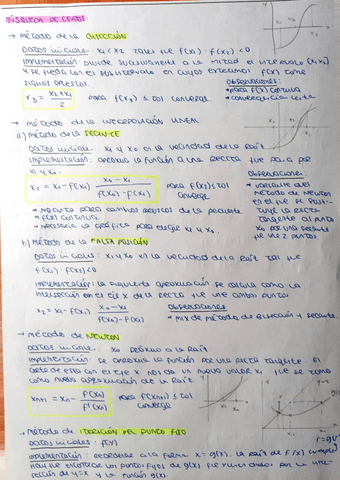 BÚSQUEDA DE CEROS
→ Método de la BISECCIÓN
DATOS iniciales: x₁ < x₂ tales que f(x₁) f(x₂) < 0
Implementación: Divide sucesivamente a la mitad el intervalo (x₁, x₂)
y se queda con el subintervalo en cuyos extremos f(x) tome
signos opuestos.
x₃ = x₂+x₁ / 2 para f(x₃) ≤ tol converge
Observaciones:
• para f(x) continua
• convergencia lenta
→ Método de la INTERPOLACIÓN LINEAL
a) Método de la SECANTE
DATOS iniciales: x₁ y x₀ en la vecindad de la raíz
Implementación: aproxima la función a una recta que pasa por
x₁ y x₀.
x₂ = x₁ - f(x₁) x₀ - x₁ / f(x₀) - f(x₁) para f(x₂) ≤ tol
converge
Observaciones:
• variante del
método de Newton
en el que se susti-
tuye la recta
tangente al punto
x₀ por una secante
que une 2 puntos
por continua
• necesaria la gráfica para elegir x₁ y x₀.
b) Método de la FALSA POSICIÓN
DATOS iniciales: x₁ y x₀ en la vecindad de la raíz tal que
f(x₁) f(x₀) < 0
Implementación: la siguiente aproximación se calcula como la
intersección en el eje x de la recta que une ambos puntos
x₂ = x₁ - f(x₁) x₀ - x₁ / f(x₀) - f(x₁)
Observaciones
• mix de método de bisección y secante
→ Método de NEWTON
DATOS iniciales: x₀ próximo a la raíz
Implementación: se aproxima la función por una recta tangente. El
corte de esta con el eje x nos da un nuevo valor x₁ que se toma
como nueva aproximación de la raíz.
xₙ₊₁ = xₙ - f(xₙ) / f'(xₙ) para f(xₙ₊₁) ≤ tol
converge
→ Método de ITERACIÓN DEL PUNTO FIJO
DATOS iniciales: f(x)
Implementación: la forma x = g(x). La raíz de f(x)
hay que encontrar los puntos fijos de g(x)
y = x y la función g(x)